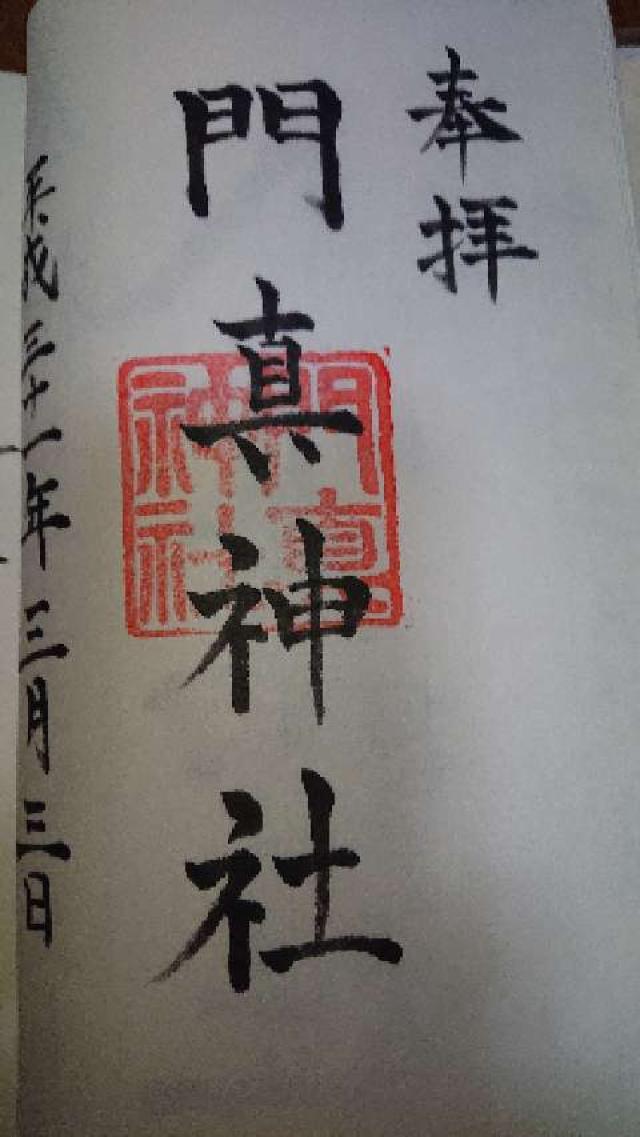 奉拝
門真神社
門真神社
平成三十一年三月三日